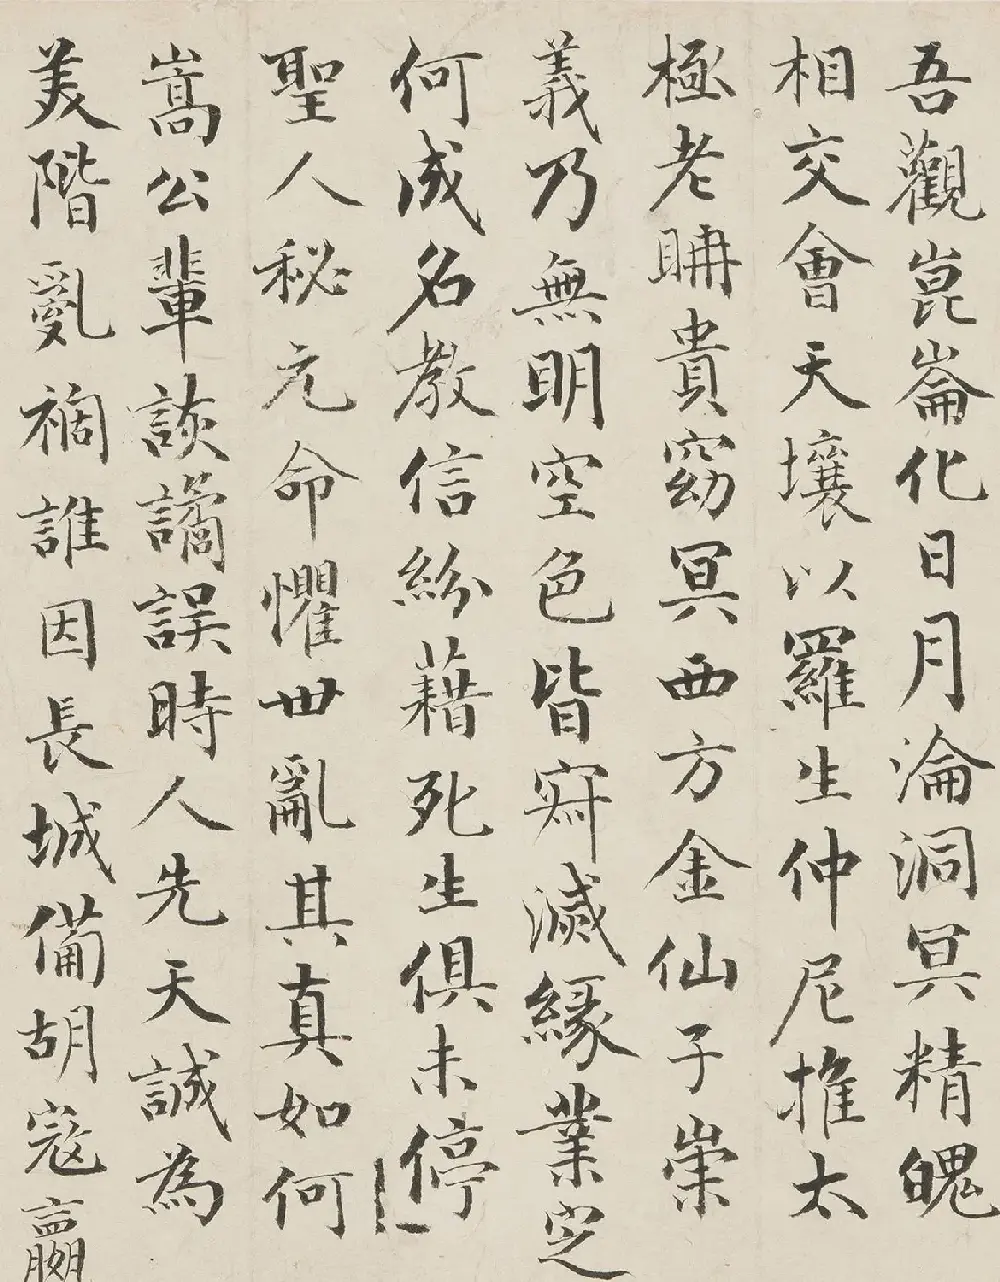 吾觀崑崙化日月淪洞冥精魄
相交會天壤以羅生仲尼推太
極老聃貴窈冥西方金仙子崇
義乃無明空色皆寂滅緣業定
何成名教信紛藉死生俱未停
聖人秘元命懼世亂其真如何
嵩公輩詼譎誤時人先天誠為
美階亂禍誰因長城備胡寇嬴